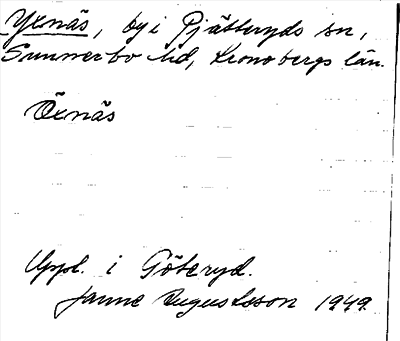 Yxnäs, by i Pjätteryds sn,
Sunnerbo hd, Kronobergs län.
Öxnäs
Uppt. i Göteryd.
Janne Augustsson 1949